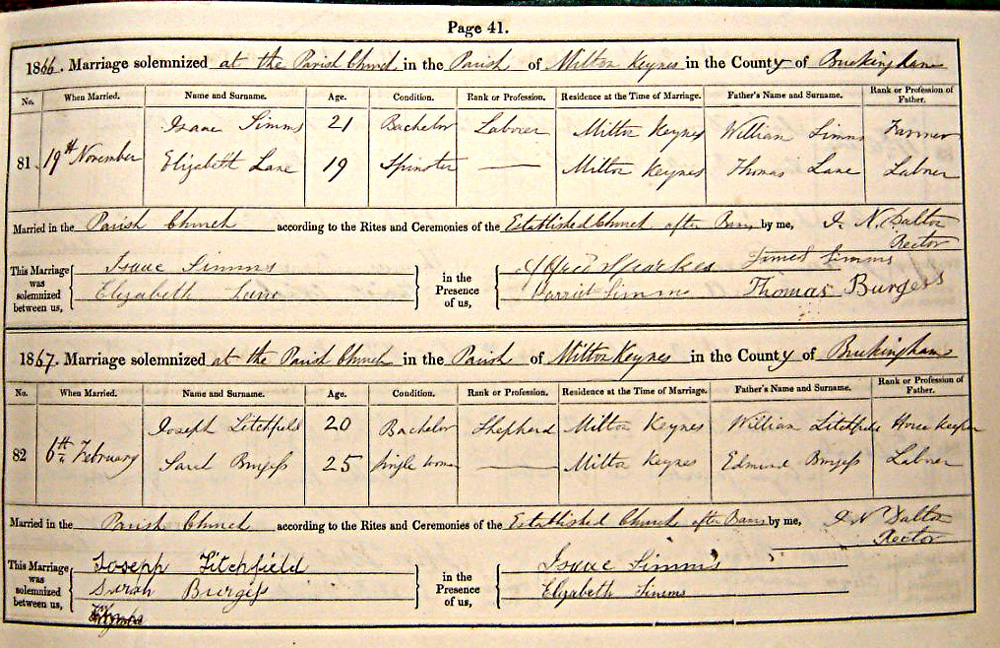 Page 41.
1866. Marriage solemnized at the Parish Church in the Parish of Milton Keynes in the County of Buckingham
No. When Married. Name and Surname. Age. Condition. Rank or Profession. Residence at the Time of Marriage. Father's Name and Surname. Rank or Profession of Father.
81. 19th November
Isaac Simms 21 Bachelor Laborer Milton Keynes William Simms Farmer
Elizabeth Lane 19 Spinster — Milton Keynes Thomas Lane Laborer
Married in the Parish Church according to the Rites and Ceremonies of the Established Church after Banns by me, N. Dalton
Rector
This Marriage was solemnized between us,
Isaac Simms
Elizabeth Lane
in the Presence of us,
Alfred Sparkes James Simms
Harriet Simms Thomas Burgess
1867. Marriage solemnized at the Parish Church in the Parish of Milton Keynes in the County of Buckingham
No. When Married. Name and Surname. Age. Condition. Rank or Profession. Residence at the Time of Marriage. Father's Name and Surname. Rank or Profession of Father.
82 6th February
Joseph Litchfield 20 Bachelor Shepherd Milton Keynes William Litchfield Horse Keeper
Sarah Burgess 25 Single Woman — Milton Keynes Edmund Burgess Laborer
Married in the Parish Church according to the Rites and Ceremonies of the Established Church after Banns by me, N Dalton
Rector
This Marriage was solemnized between us,
Joseph Litchfield
Sarah Burgess
in the Presence of us,
Isaac Simms
Elizabeth Simms